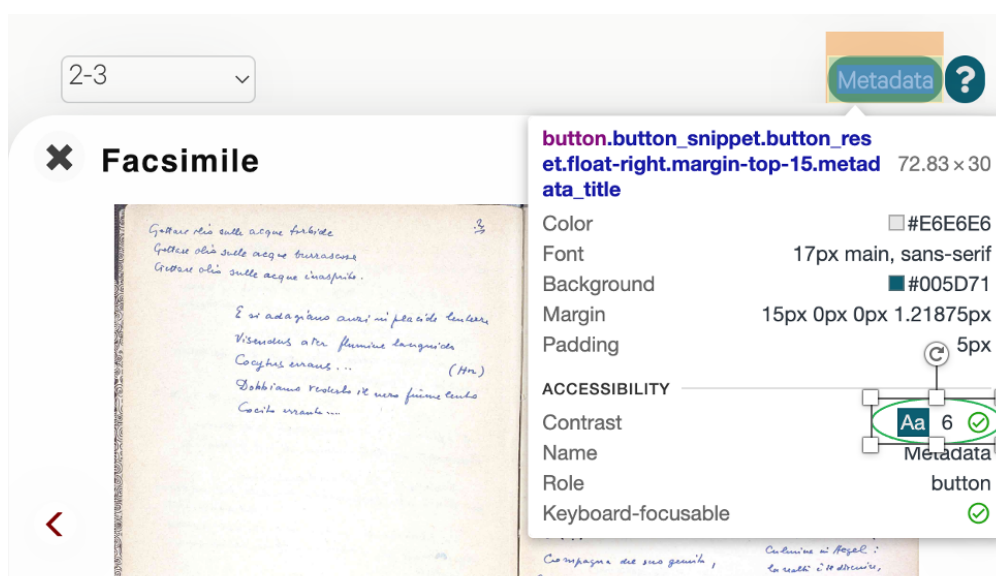 2-3
Metadata
?
Facsimile
button.button_snippet.button_res
et.float-right.margin-top-15.metad
ata_title
72.83 × 30
Color #E6E6E6
Font 17px main, sans-serif
Background #005D71
Margin 15px 0px 0px 1.21875px
Padding 5px
ACCESSIBILITY
Contrast Aa 6
Name Metadata
Role button
Keyboard-focusable
Gettare olio sulle acque torbide
Gettare olio sulle acque burrascose
Gettare olio sulle acque inasprite.
E si adagiano anzi in placide
Visendus ater flumine languido
Cocytus errans... (Hor)
Dobbiamo vederlo il nero fiume lento
Cocito errante...
Compagna del suo genito,
Culmine in Hegel: